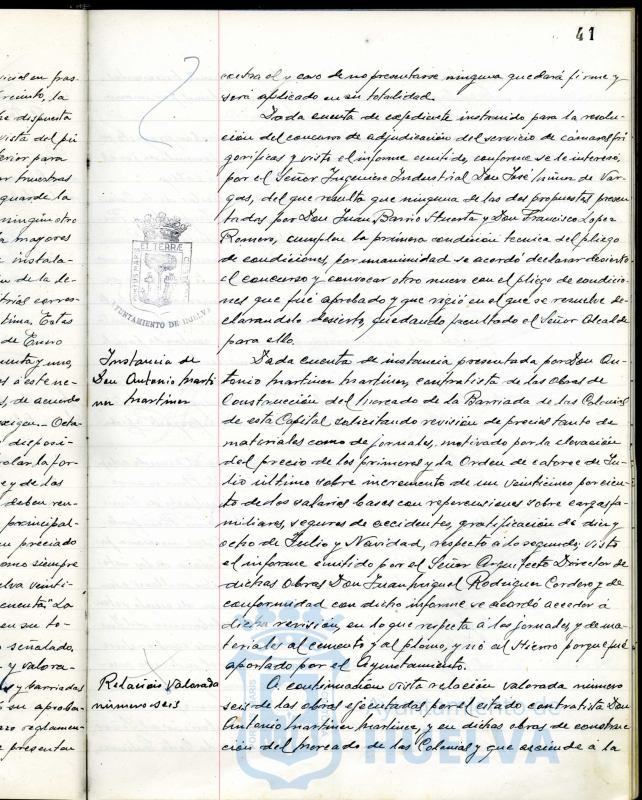 41
contra él y caso de no presentarse ninguna quedará firme y
será aplicado en su totalidad.
Dada cuenta de expediente instruido para la resolu-
ción del concurso de adjudicación del servicio de cámaras fri
goríficas y visto el informe emitido, conforme se le interesó,
por el Señor Ingeniero Industrial Don José Muñoz de Var-
gas, del que resulta que ninguna de las dos propuestas presen-
tadas por Don Juan Barrio Huerta y Don Francisco Lopez
Romero, cumplen la primera condición técnica del pliego
de condiciones, por unanimidad se acordó declarar desierto
el concurso y convocar otro nuevo con el pliego de condicio-
nes que fué aprobado y que rigió en el que se resuelve de-
clarandolo desierto, quedando facultado el Señor Alcalde
para ello.
Instancia de
Don Antonio Marti
nez Martinez
Dada cuenta de instancia presentada por Don An-
tonio Martinez Martinez, contratista de las obras de
Construcción del Mercado de la Barriada de las Colonias
de esta Capital solicitando revisión de precios tanto de
materiales como de jornales, motivado por la elevación
del precio de los primeros y la Orden de catorce de Ju-
lio último sobre incremento de un veinticinco por cien-
to de los salarios bases con repercusiones sobre cargas fa-
miliares, seguros de accidentes, gratificación de diez y
ocho de Julio y Navidad, respecto a lo segundo; visto
el informe emitido por el Señor Arquitecto Director de
dichas obras Don Juan Miguel Rodriguez Cordero y de
conformidad con dicho informe se acordó acceder á
dicha revisión, en lo que respecta á los jornales y de ma-
teriales al cemento y al plomo, y nó al Hierro porque fué
aportado por el Ayuntamiento.
Relación valorada
número seis
A continuación vista relación valorada número
seis de las obras ejecutadas por el citado contratista Don
Antonio Martinez Martinez, y en dichas obras de construc
ción del Mercado de las Colonias y que asciende á la
AYUNTAMIENTO DE HUELVA
Ayuntamiento de
HUELVA